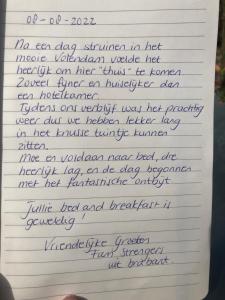 08-08-2022
Na een dag struinen in het
mooie Volendam voelde het
heerlijk om hier "thuis" te komen
Zoveel fijner en huiselijker dan
een hotelkamer.
Tijdens ons verblijf was het prachtig
weer dus we hebben lekker lang
in het knusse tuintje kunnen
zitten.
Moe en voldaan naar bed, die
heerlijk lag, en de dag begonnen
met het fantastische ontbijt
Jullie bed and breakfast is
geweldig!
Vriendelijke Groeten
Fam Strengers
uit brabant.